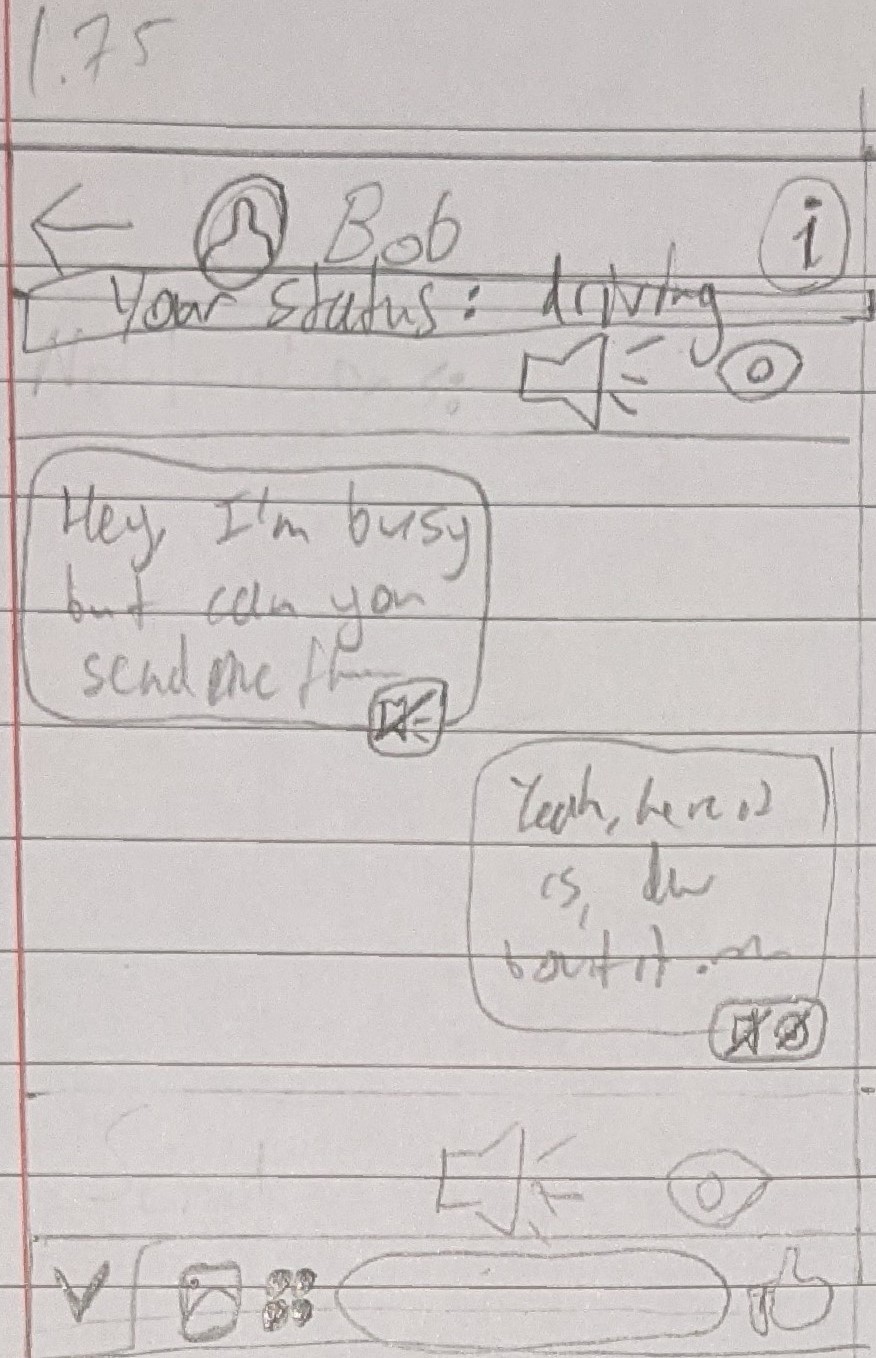 1.75
Bob i
Your status: driving
Hey, I'm busy
but can you
send me
Yeah, here
is, dw
bout it.